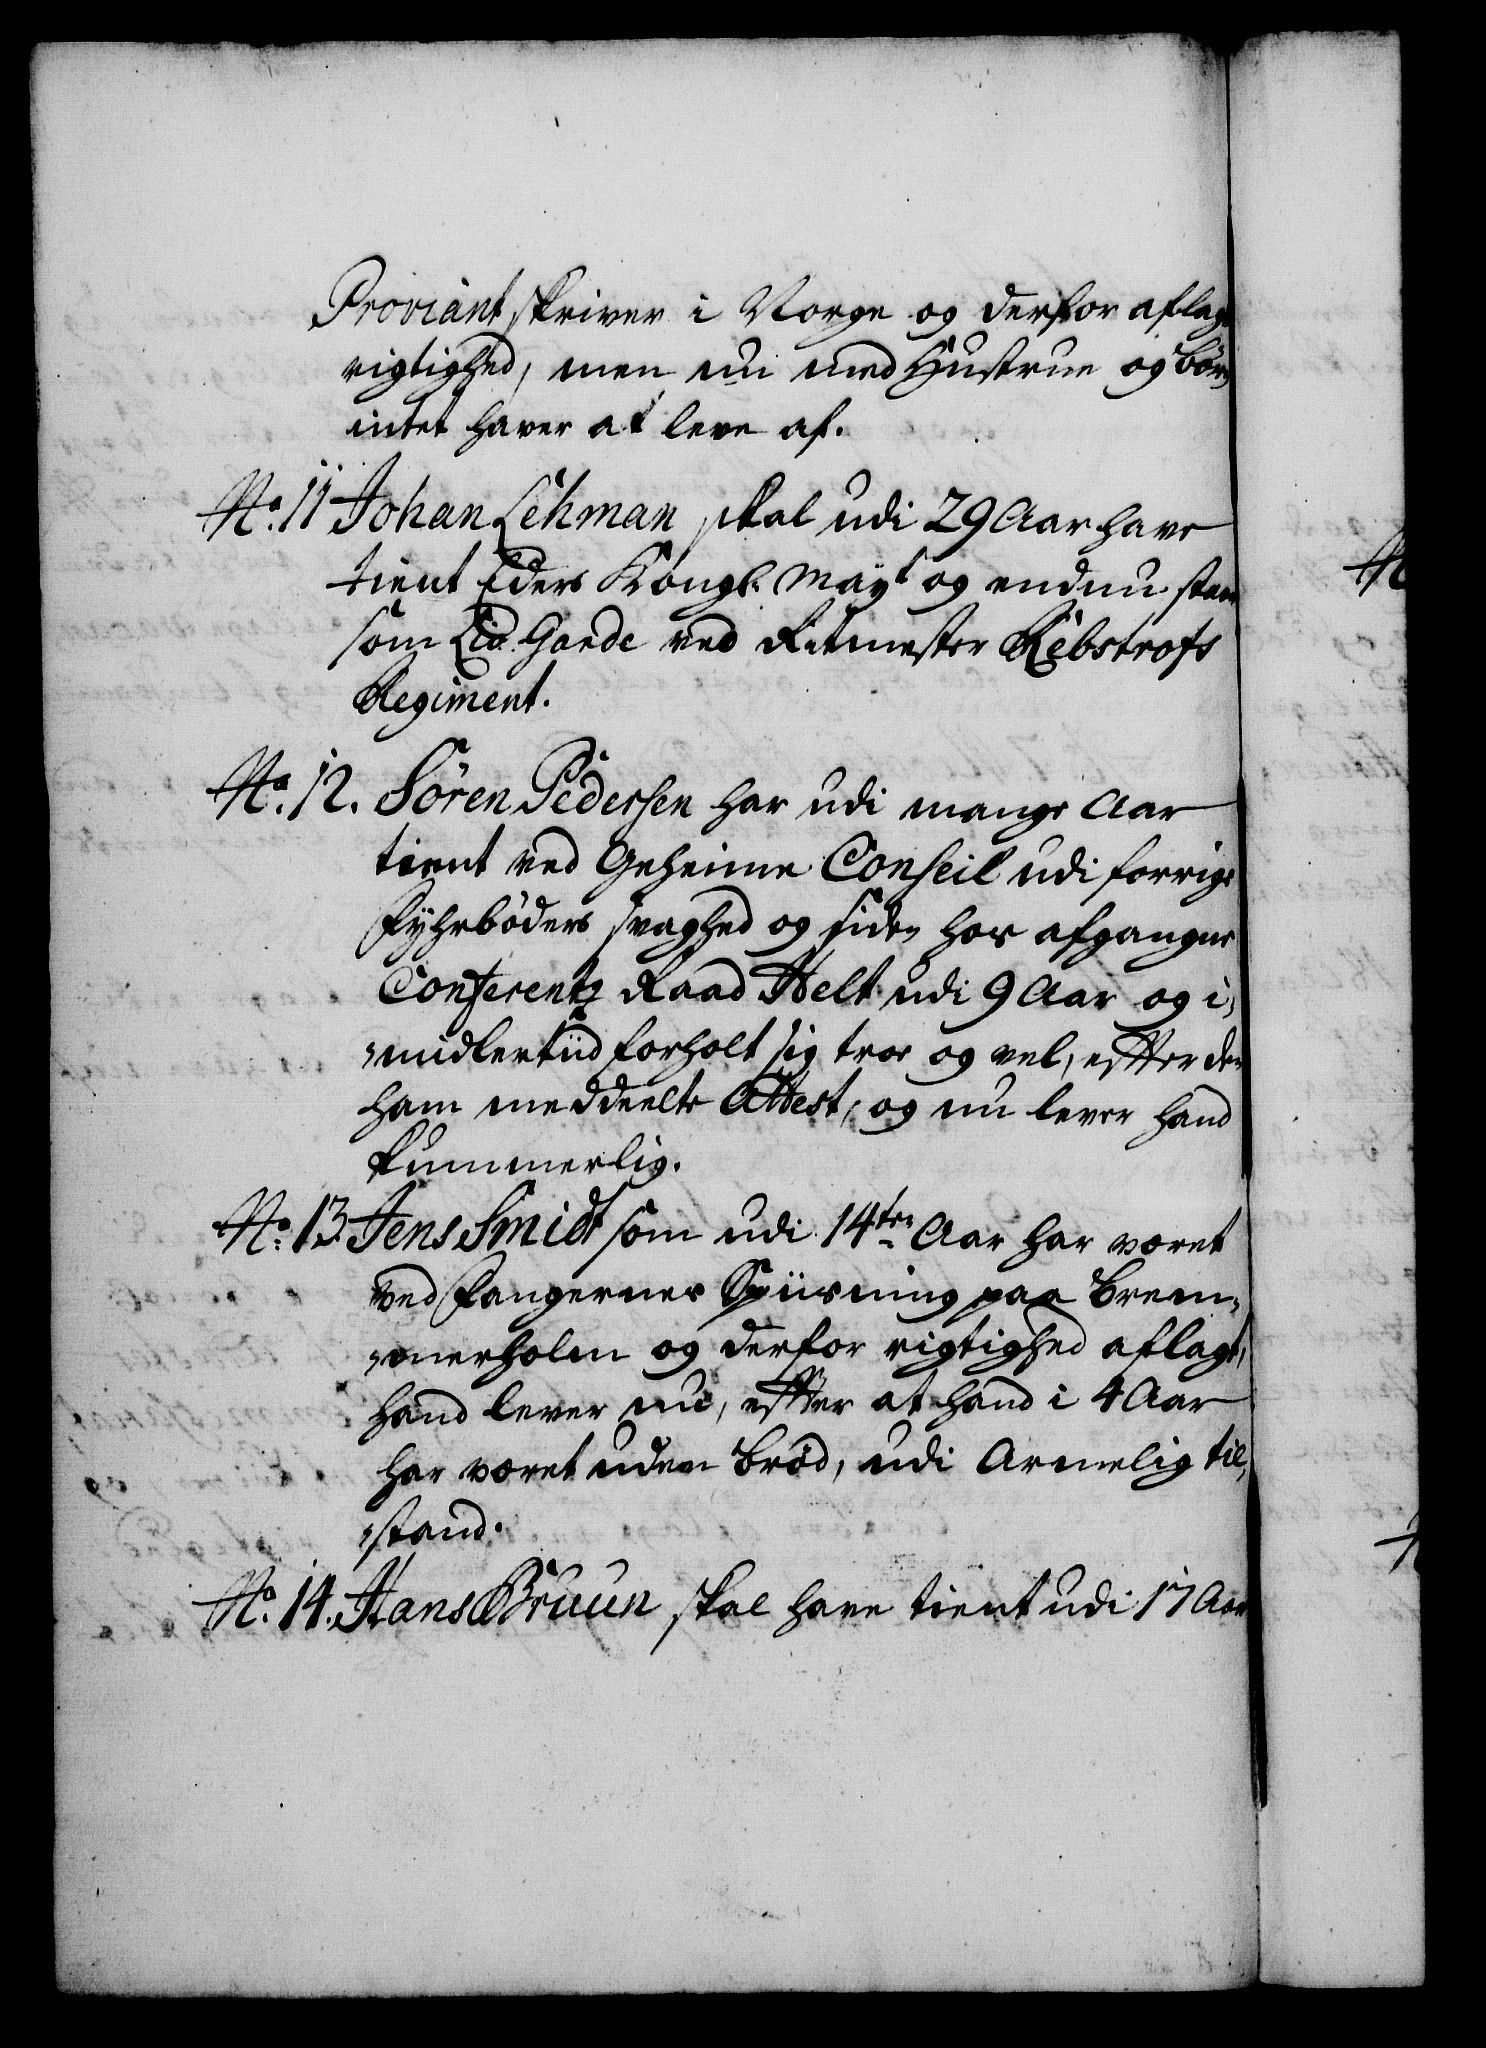 Proviantskriver i Norge og derfor aflagt
rigtighed, men nu med Hustrue og børn
intet haver at leve af.
No. 11 Johan Lehman skal udi 29 Aar have
tient Eders Kongl. Mayt og endnu staar
som Liv Garde ved Ritmester Rebstrofs
Regiment.
No. 12. Søren Pedersen har udi mange Aar
tient ved Geheime Conseil udi forrige
Fyhrbøders svaghed og siden hos afgangne
Conferentz Raad Helt udi 9 Aar og i,
,midlertiid forholt sig troe og vel, effter den
ham meddeelte Attest, og nu lever hand
kummerlig.
No. 13 Jens Smidt som udi 14ten Aar har været
ved Fangernes Spiisning paa Brem,
,merholm og derfor rigtighed aflagt,
hand lever nu, effter at hand i 4 Aar
har været uden brød, udi Armelig til,
,stand.
No. 14. Hans Bruun skal have tient udi 17 Aar